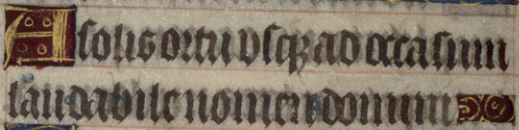 A solis ortu vsqꝫ ad occasum
laudabile nomen domini